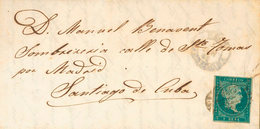 D. Manuel Benavent
Sombrereria calle de Sto Tomas
por Madrid
Santiago de Cuba